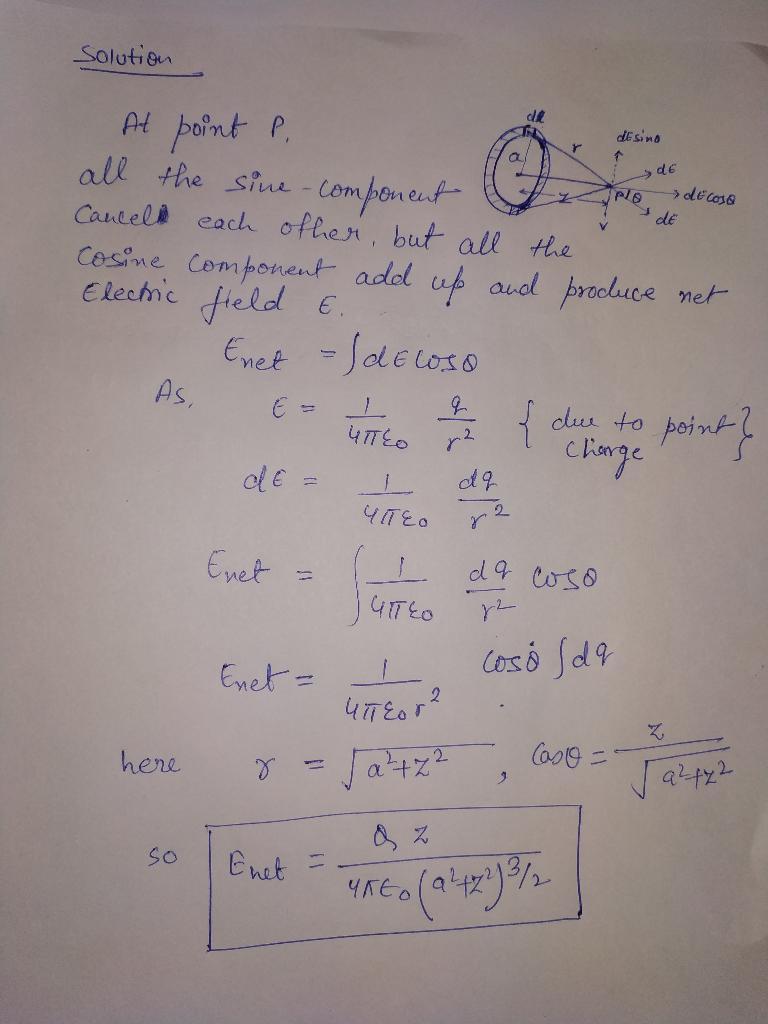 Solution
At point P,
all the sine-component
Cancel each other, but all the
Cosine component add up and produce net
Electric field E.
dl
a
r
z
P
θ
dEsinθ
dE
dEcosθ
dE
Enet = ∫dEcosθ
As, E = 1/4πε₀ q/r² { due to point charge }
dE = 1/4πε₀ dq/r²
Enet = ∫ 1/4πε₀ dq/r² cosθ
Enet = 1/4πε₀r² cosθ ∫dq
here r = √a²+z² , Cosθ = z/√a²+z²
so Enet = Q z/4πε₀(a²+z²)^3/2